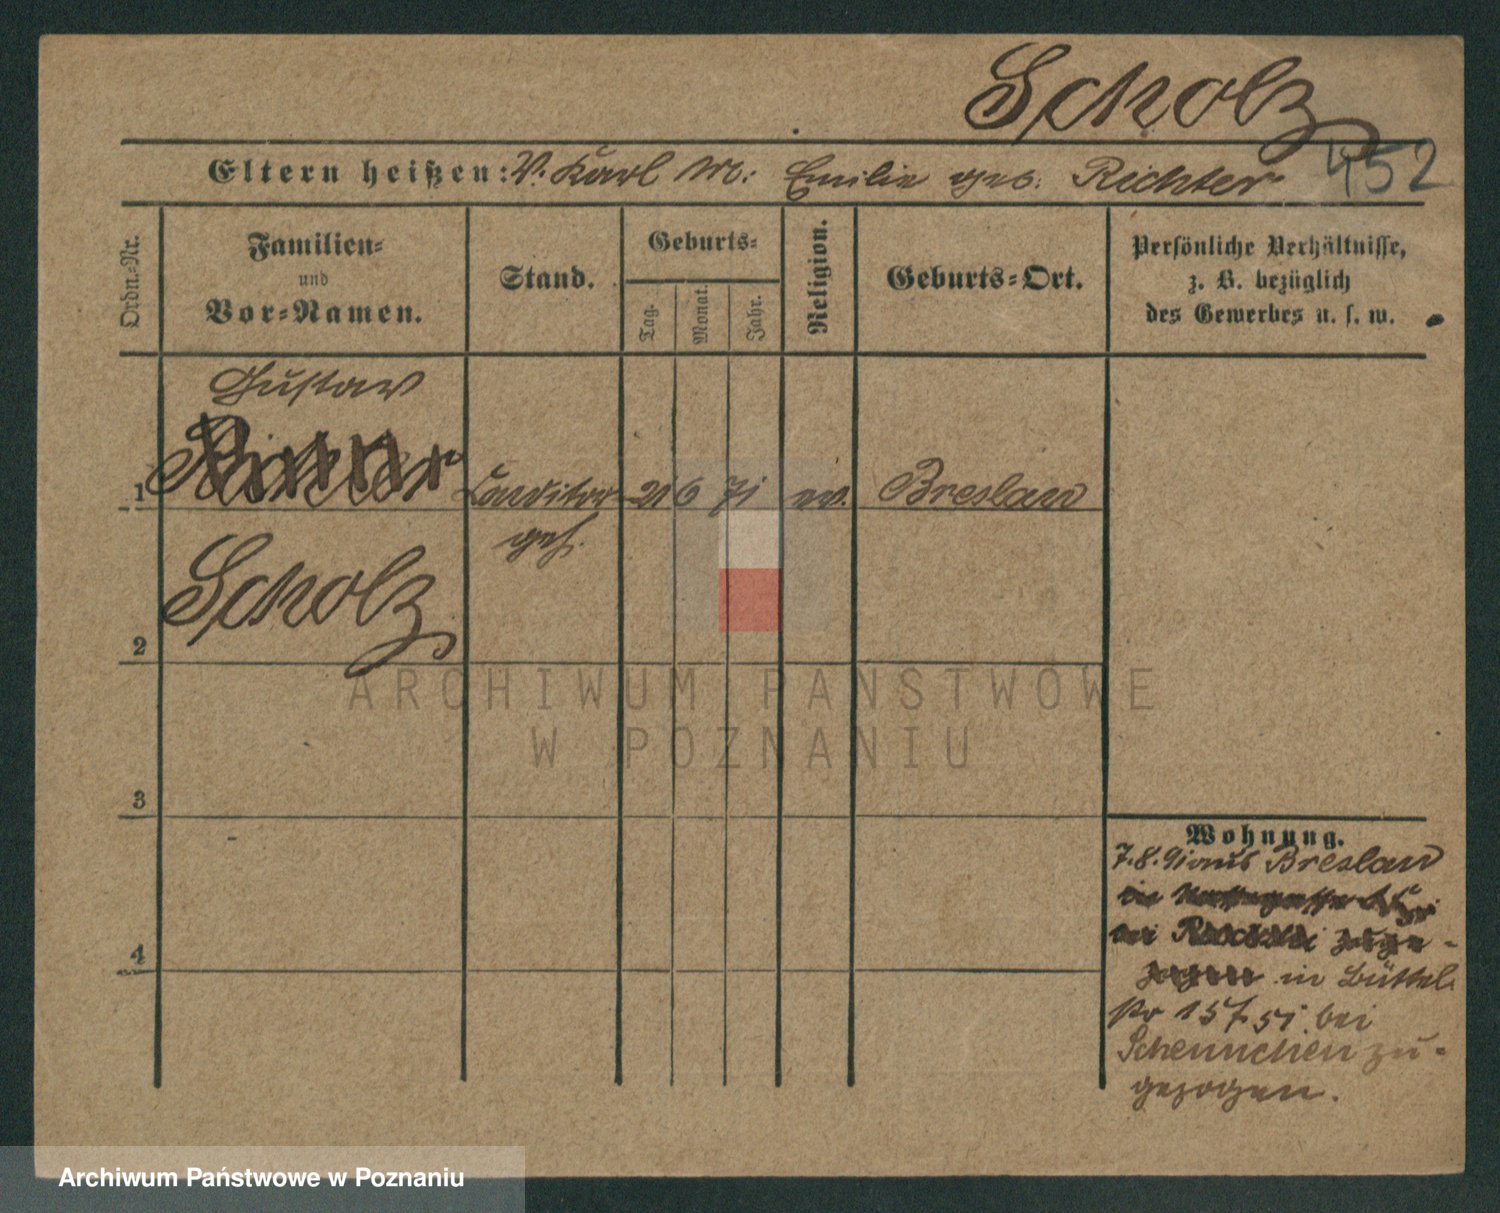 Scholz
452
Eltern heißen: V. Karl M: Emilie geb. Richter
Ordn.-Nr.
Familien-
und
Vor-Namen.
Stand.
Geburts-
Tag.
Monat.
Jahr.
Religion.
Geburts-Ort.
Persönliche Verhältnisse,
z. B. bezüglich
des Gewerbes u. s. w.
Gustav
1 Conditor 21 6 71 ev. Breslau
geh.
Scholz
2
3
4
Wohnung.
7.8.91 aus Breslau
in Büttel
str 15 bei
zu-
gezogen.
ARCHIWUM PAŃSTWOWE
W POZNANIU
Archiwum Państwowe w Poznaniu